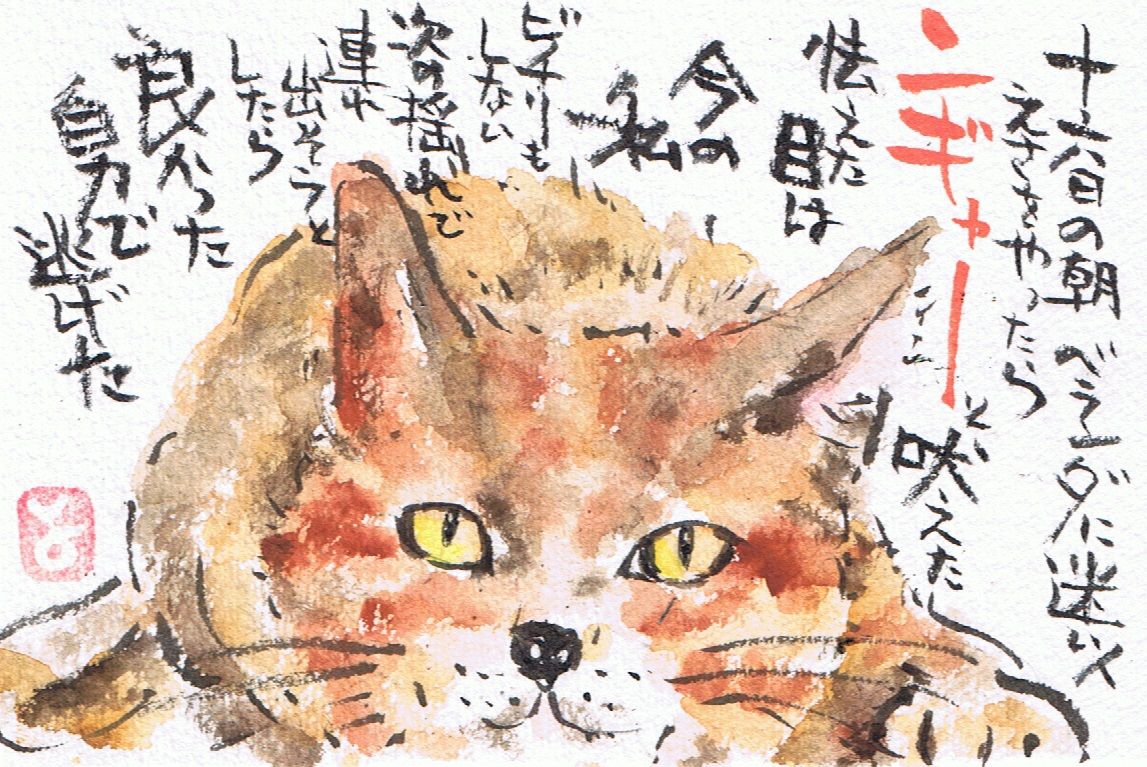 十六日の朝 ベランダに迷い
えさをやったら
ニギャー
と吠えた
怯えた
目は
今の
私
ビクリも
しない
次の揺れで
連れ
出そうと
したら
良かった
自力で
逃げた
とよ